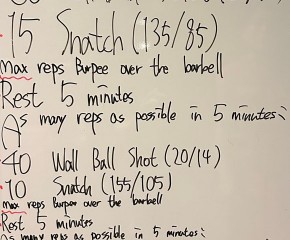 15 Snatch (135/85)
max reps Burpee over the barbell
Rest 5 minutes
As many reps as possible in 5 minutes:
40 Wall Ball Shot (20/14)
10 Snatch (155/105)
max reps Burpee over the barbell
Rest 5 minutes
As many reps as possible in 5 minutes: